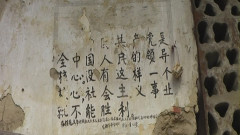 中国共产党是
全中国人民的领导
核心没有这样一个
核心社会主义事业
就不能胜利